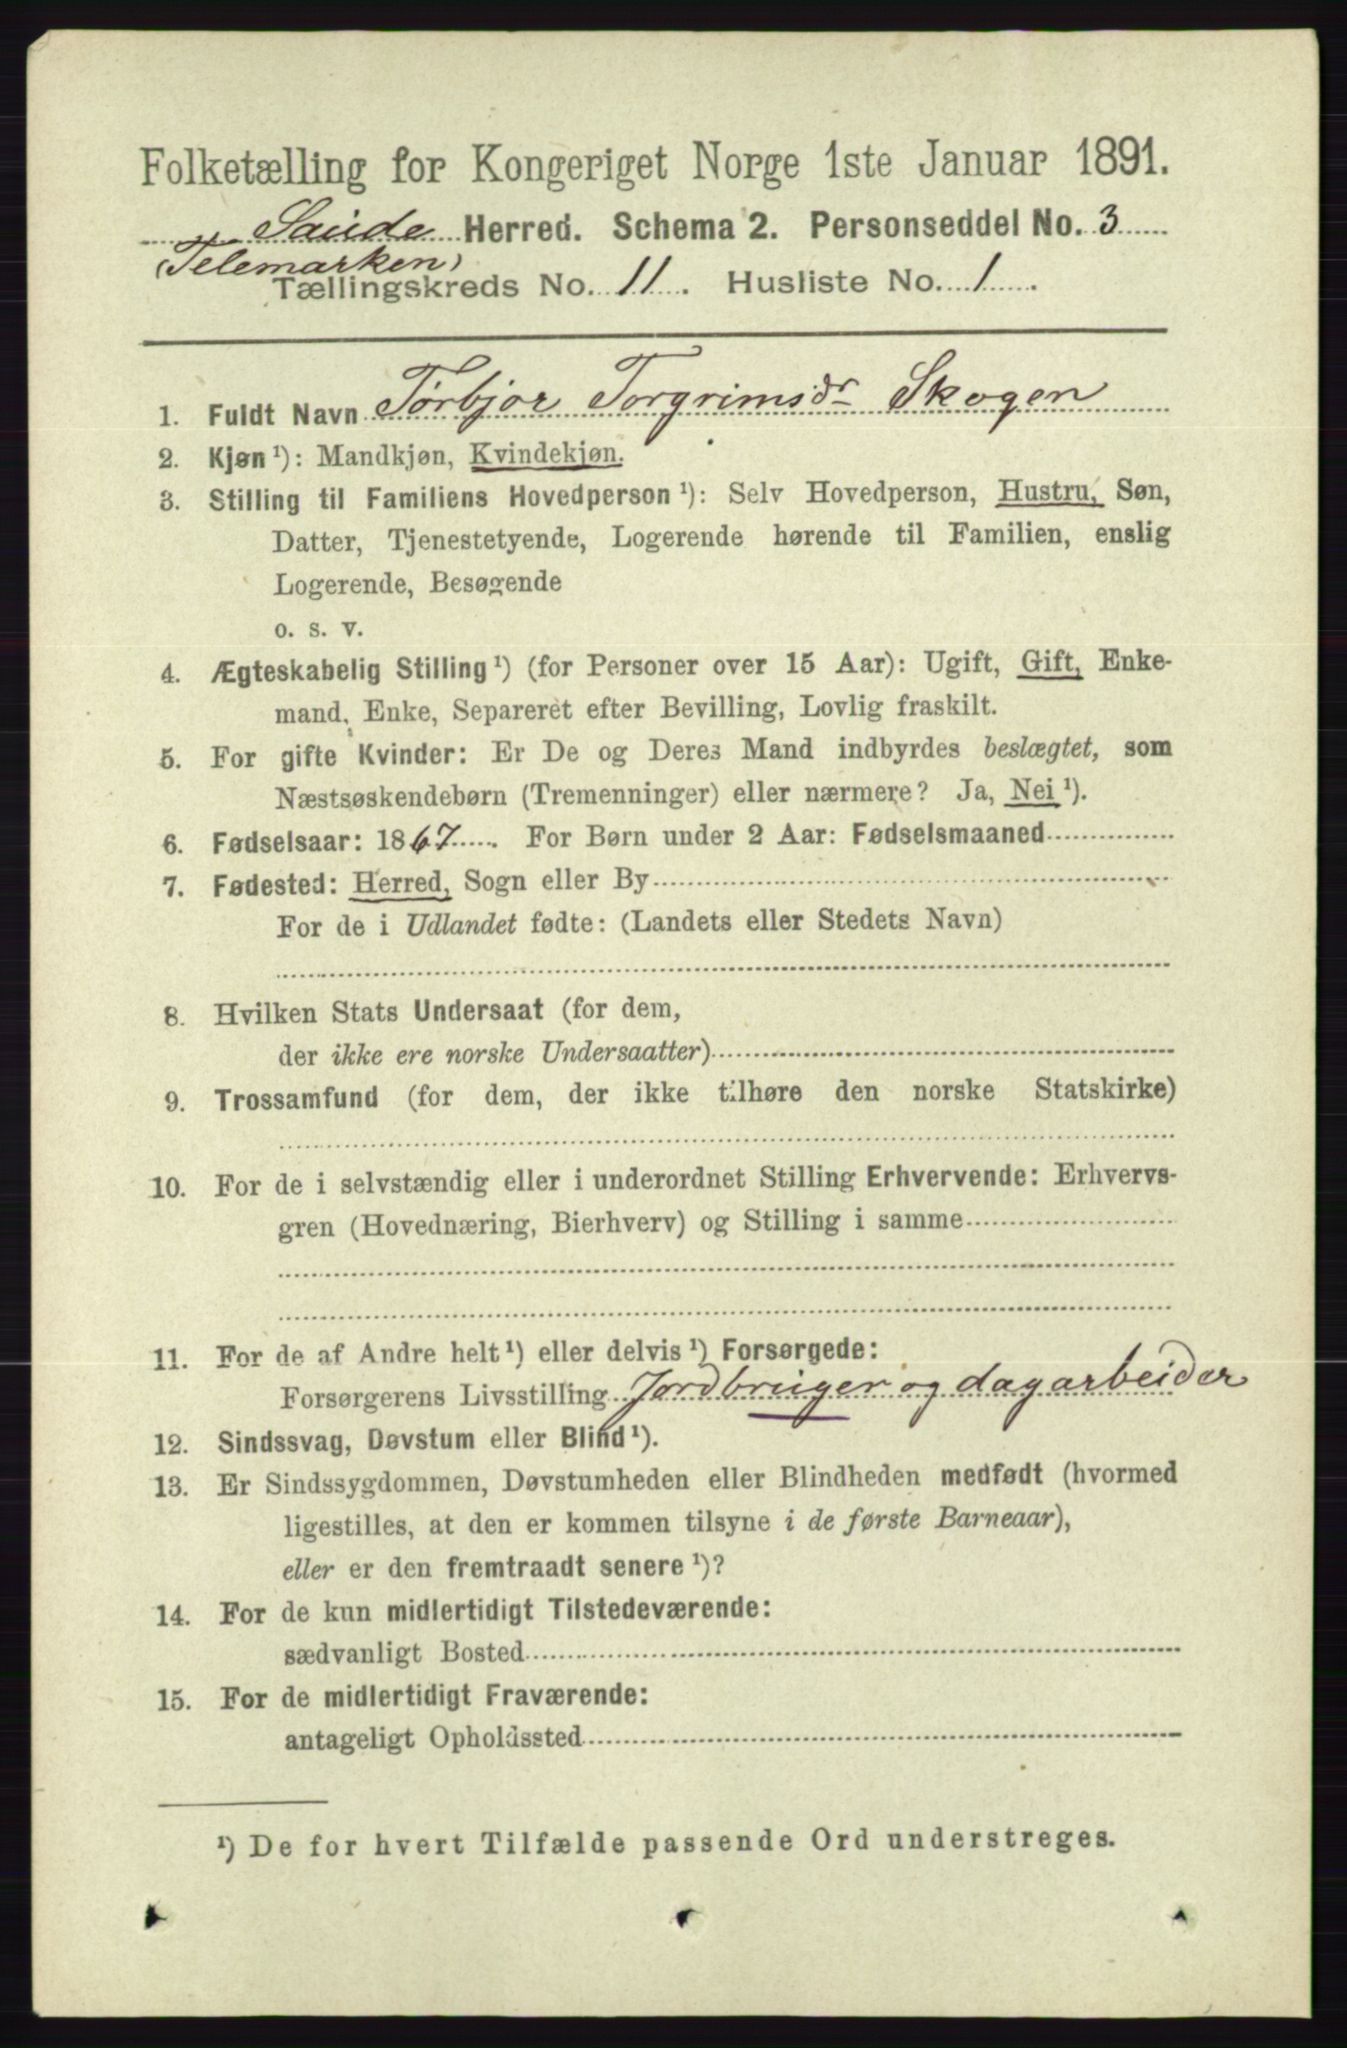 Folketælling for Kongeriget Norge 1ste Januar 1891.
Saude Herred. Schema 2. Personseddel No. 3
(Telemarken)
Tællingskreds No. 11. Husliste No. 1.
1. Fuldt Navn Tørbjor Torgrimsdr Skogen
2. Kjøn¹): Mandkjøn, Kvindekjøn.
3. Stilling til Familiens Hovedperson¹): Selv Hovedperson, Hustru, Søn,
Datter, Tjenestetyende, Logerende hørende til Familien, enslig
Logerende, Besøgende
o. s. v.
4. Ægteskabelig Stilling¹) (for Personer over 15 Aar): Ugift, Gift, Enke-
mand, Enke, Separeret efter Bevilling, Lovlig fraskilt.
5. For gifte Kvinder: Er De og Deres Mand indbyrdes beslægtet, som
Næstsøskendebørn (Tremenninger) eller nærmere? Ja, Nei¹).
6. Fødselsaar: 1867. For Børn under 2 Aar: Fødselsmaaned
7. Fødested: Herred, Sogn eller By
For de i Udlandet fødte: (Landets eller Stedets Navn)
8. Hvilken Stats Undersaat (for dem,
der ikke ere norske Undersaatter)
9. Trossamfund (for dem, der ikke tilhøre den norske Statskirke)
10. For de i selvstændig eller i underordnet Stilling Erhvervende: Erhvervs-
gren (Hovednæring, Bierhverv) og Stilling i samme
11. For de af Andre helt¹) eller delvis¹) Forsørgede:
Forsørgerens Livsstilling Jordbruger og dagarbeider
12. Sindssvag, Døvstum eller Blind¹).
13. Er Sindssygdommen, Døvstumheden eller Blindheden medfødt (hvormed
ligestilles, at den er kommen tilsyne i de første Barneaar),
eller er den fremtraadt senere¹)?
14. For de kun midlertidigt Tilstedeværende:
sædvanligt Bosted
15. For de midlertidigt Fraværende:
antageligt Opholdssted
¹) De for hvert Tilfælde passende Ord understreges.